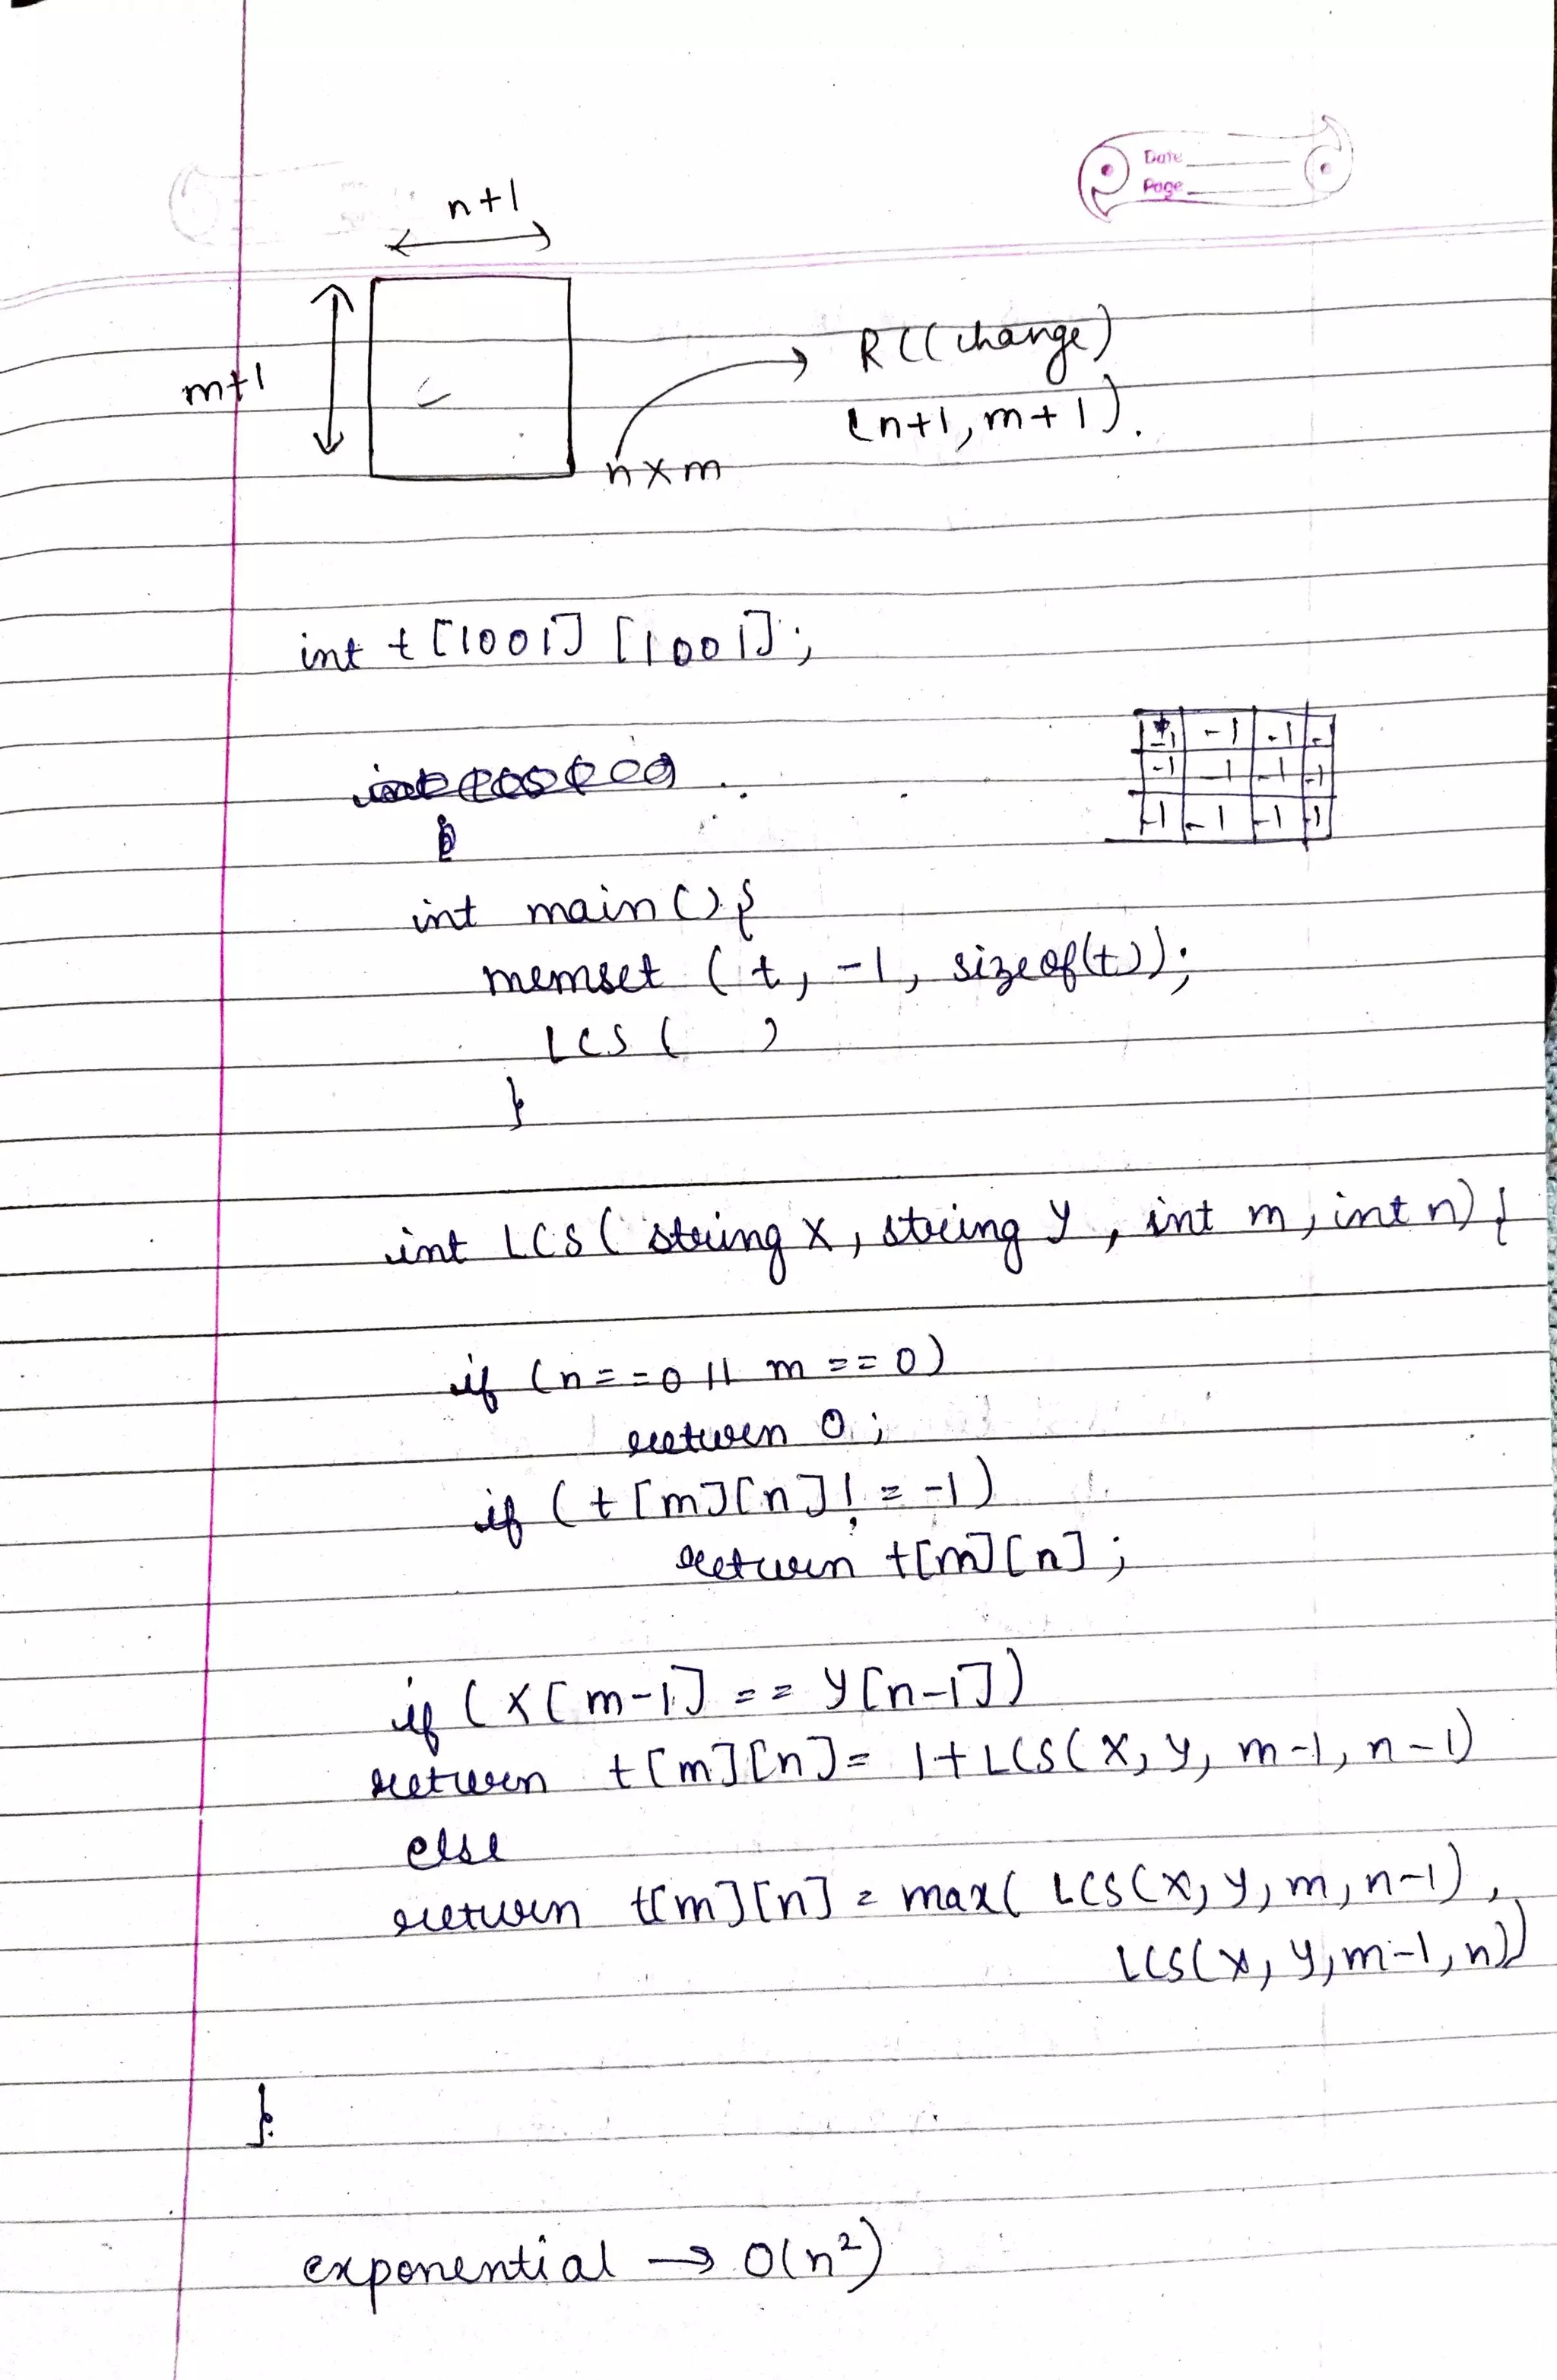 Date
Page
n+1
m+1
RC(change)
(n+1, m+1).
n×m
int t[1001][1001];
-1 -1 -1 -
-1 -1 -1 -1
-1 -1 -1 -1
int main(){
memset (t, -1, sizeof(t));
LCS( )
}
int LCS( string X, string Y, int m, int n){
if (n==0 || m==0)
return 0;
if (t[m][n]!=-1)
return t[m][n];
if (X[m-1] == Y[n-1])
return t[m][n]= 1+LCS(X, Y, m-1, n-1)
else
return t[m][n] = max( LCS(X, Y, m, n-1),
LCS(X, Y, m-1, n))
}
exponential → O(n²)